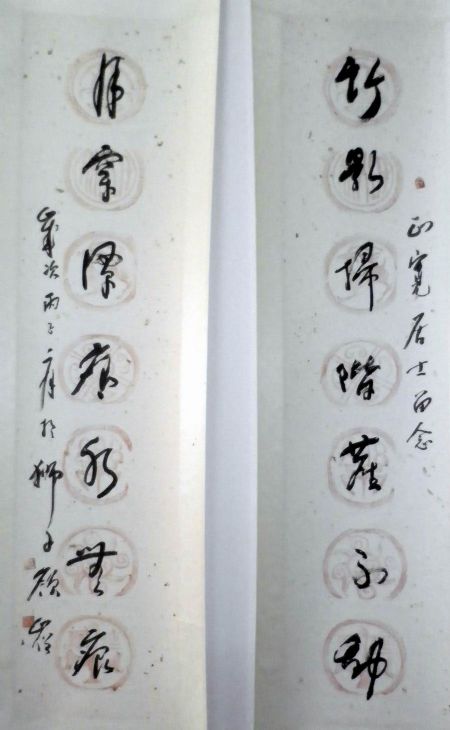 正寬居士留念
竹影掃階塵不動
月穿潭底水無痕
歲次丙子 於獅子